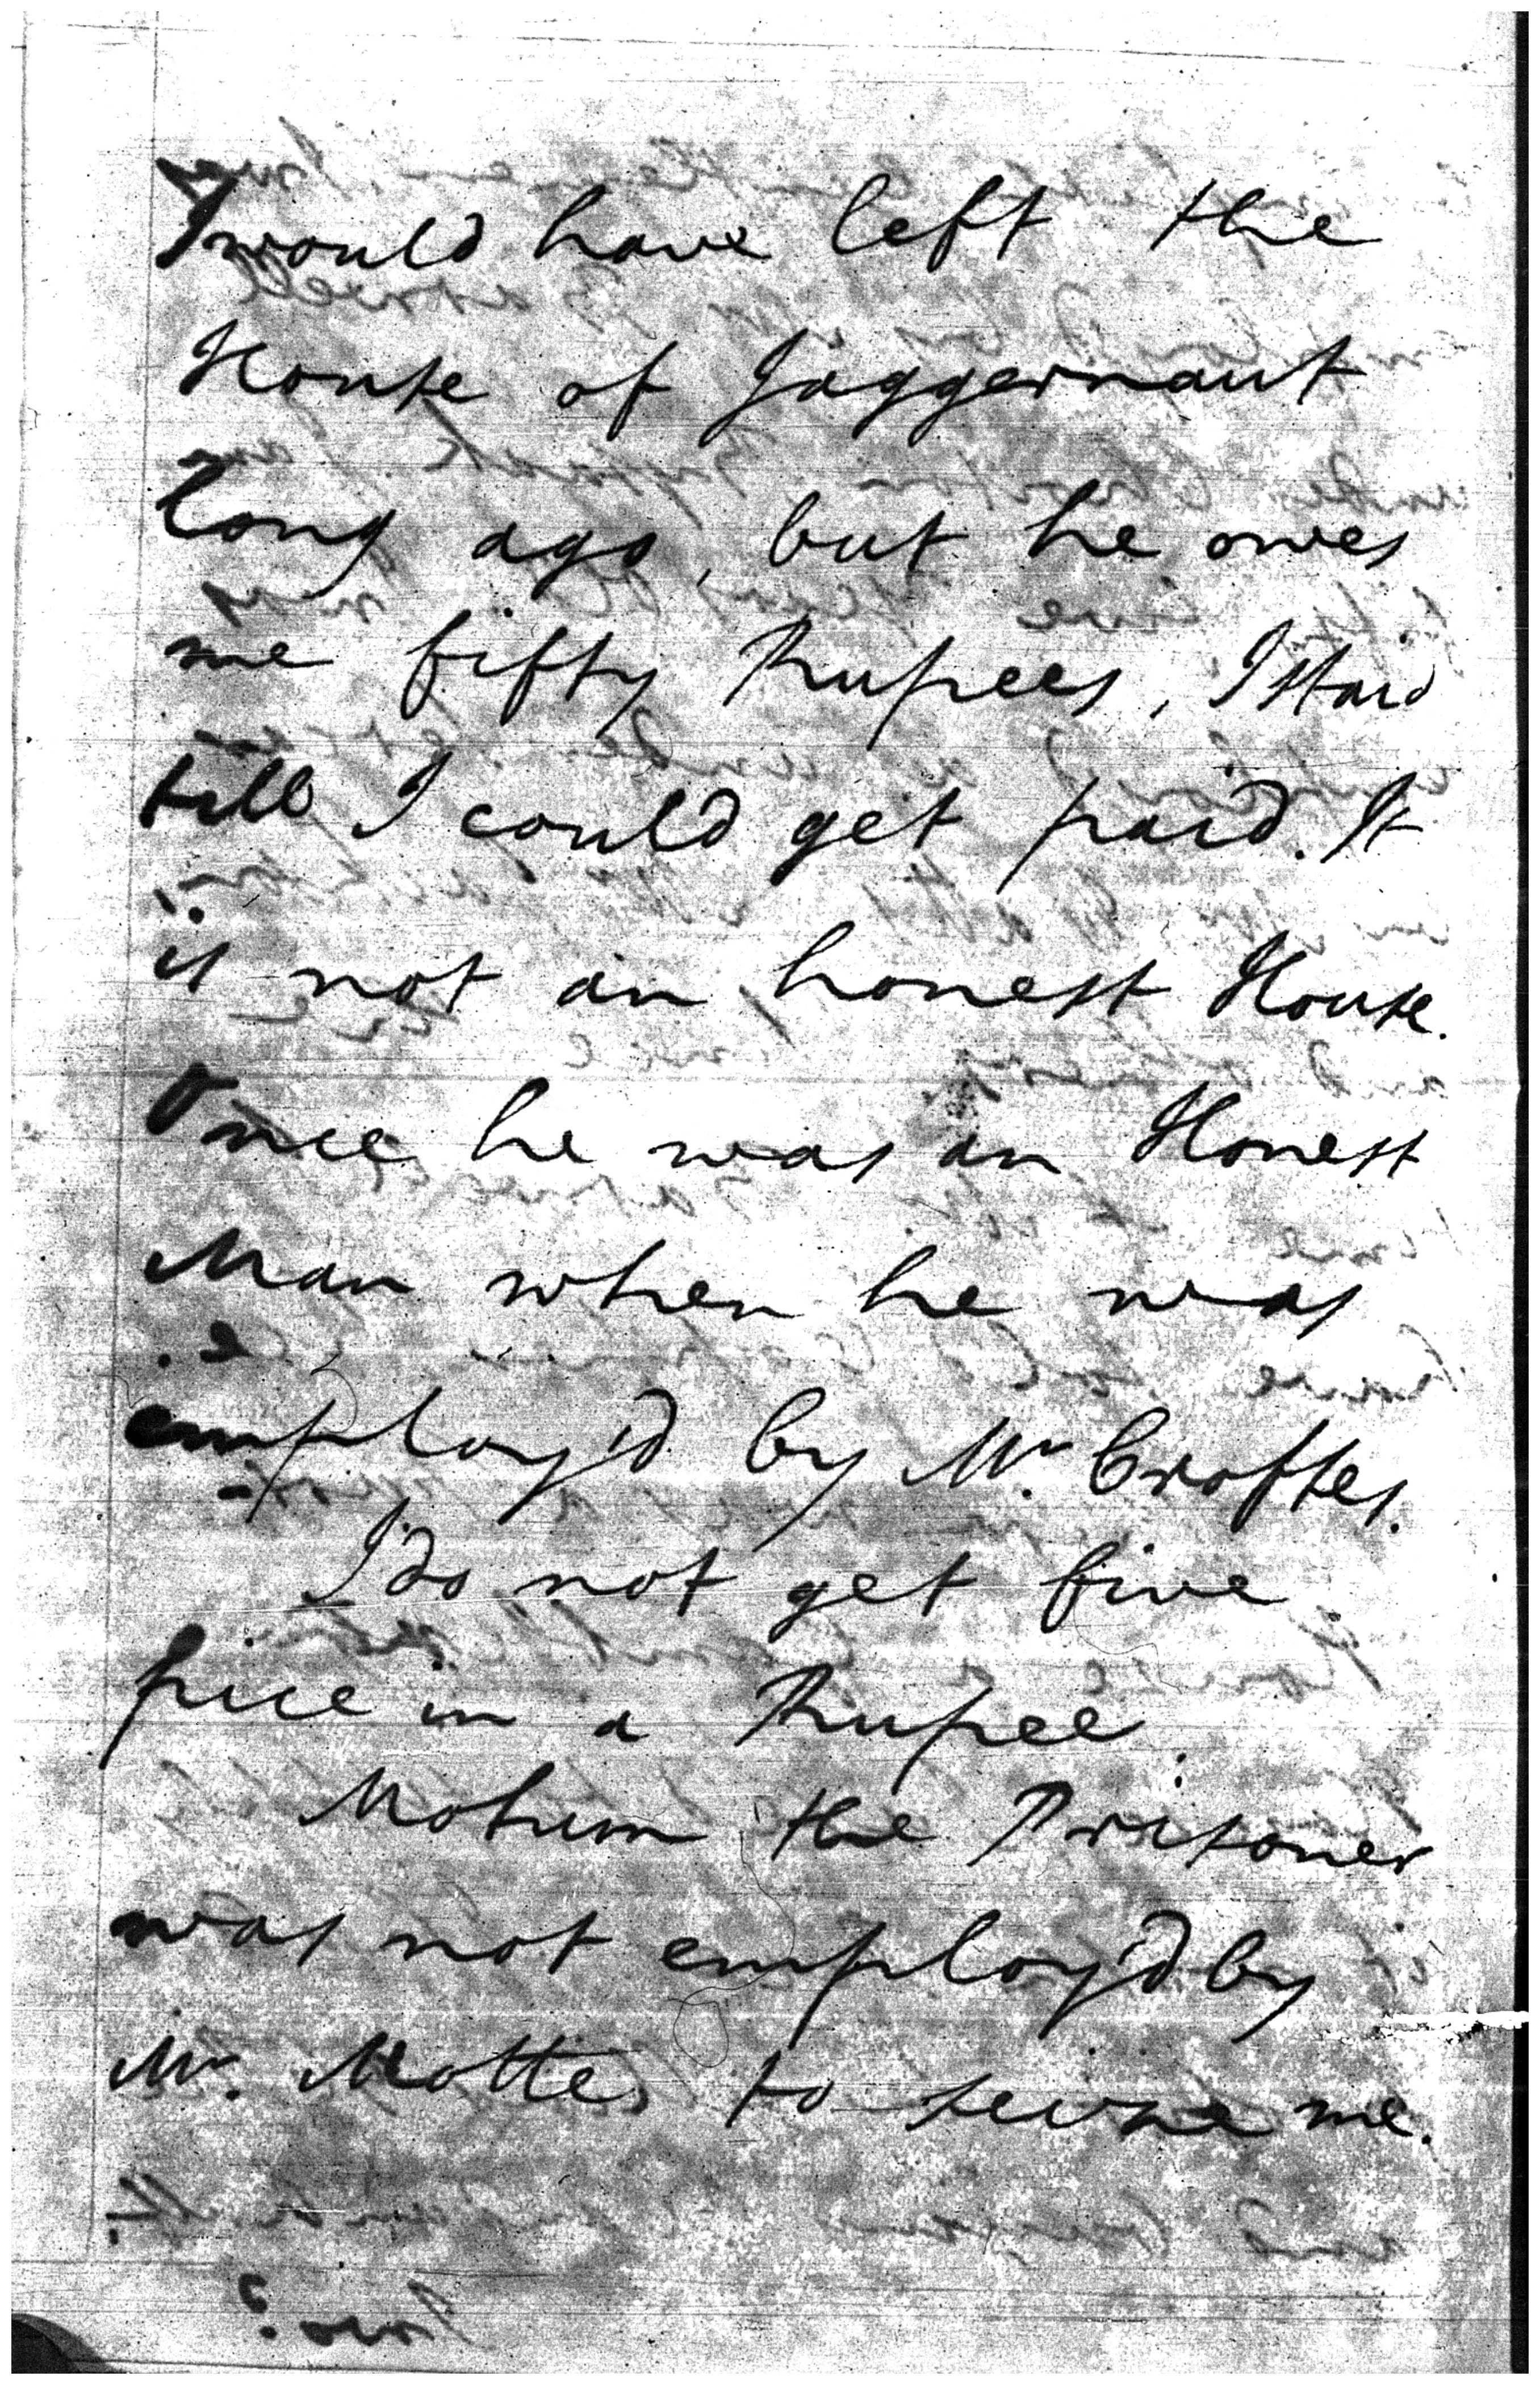 I would have left the
House of Jaggernaut
long ago, but he owes
me fifty Rupees, I staid
till I could get paid. It
is not an honest House.
Once he was an Honest
Man when he was
employ'd by Mr. Croftes.
I do not get five
pice in a Rupee.
Mohum the Prisoner
was not employ'd by
Mr. Motte, to seize me.